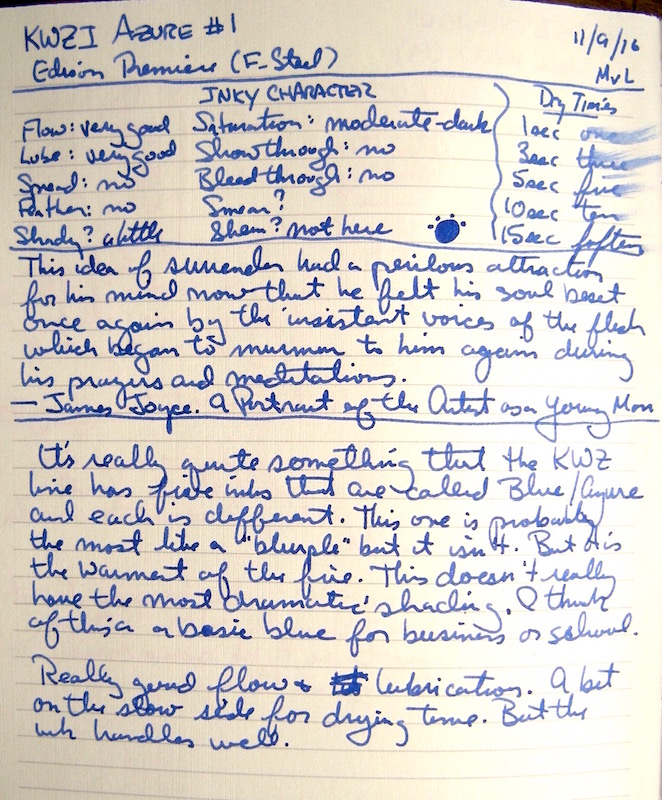 KWZI AZURE #1
11/9/16
Edison Premiere (F-Steel)
MvL
INKY CHARACTER
Dry Times
Flow: very good Saturation: moderate-dark 1sec one
Lube: very good Showthrough: no 3sec three
Spread: no Bleedthrough: no 5sec five
Feather: no Smear? 10sec ten
Shady? a little Sheen? not here 15sec fifteen
This idea of surrender had a perilous attraction
for his mind now that he felt his soul beset
once again by the insistent voices of the flesh
which began to murmur to him again during
his prayers and meditations.
— James Joyce. A Portrait of the Artist as a Young Man
It's really quite something that the KWZ
line has five inks that are called Blue/Azure
and each is different. This one is probably
the most like a "blurple" but it isn't. But it is
the warmest of the five. This doesn't really
have the most dramatic shading. I think
of this a basic blue for business or school.
Really good flow + lubrication. A bit
on the slow side for drying time. But the
ink handles well.